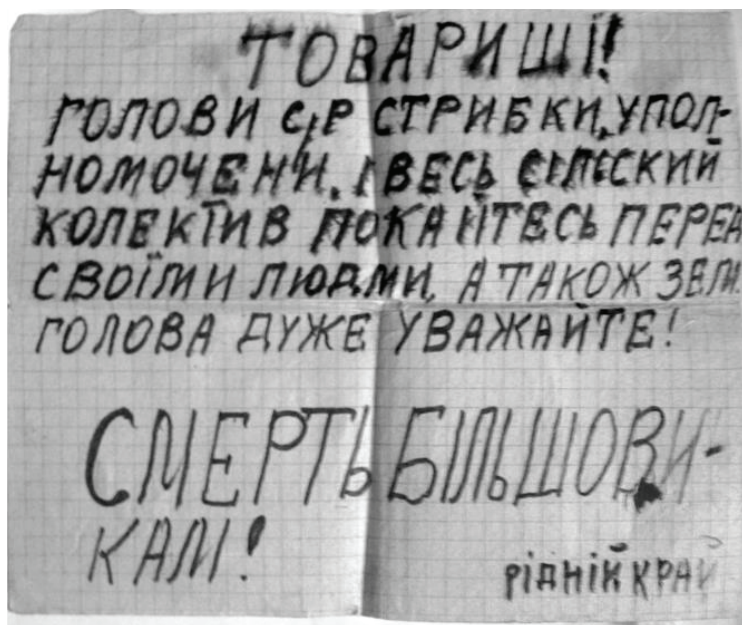 ТОВАРИШІ!
ГОЛОВИ С/Р СТРИБКИ, УПОЛ-
НОМОЧЕНИ, І ВЕСЬ СІЛЬСКИЙ
КОЛЕКТИВ ПОКАЙТЕСЬ ПЕРЕД
СВОЇМИ ЛЮДМИ, А ТАКОЖ ЗЕМ.
ГОЛОВА ДУЖЕ УВАЖАЙТЕ!
СМЕРТЬ БІЛЬШОВИ-
КАМ!
РІДНІЙ КРАЙ